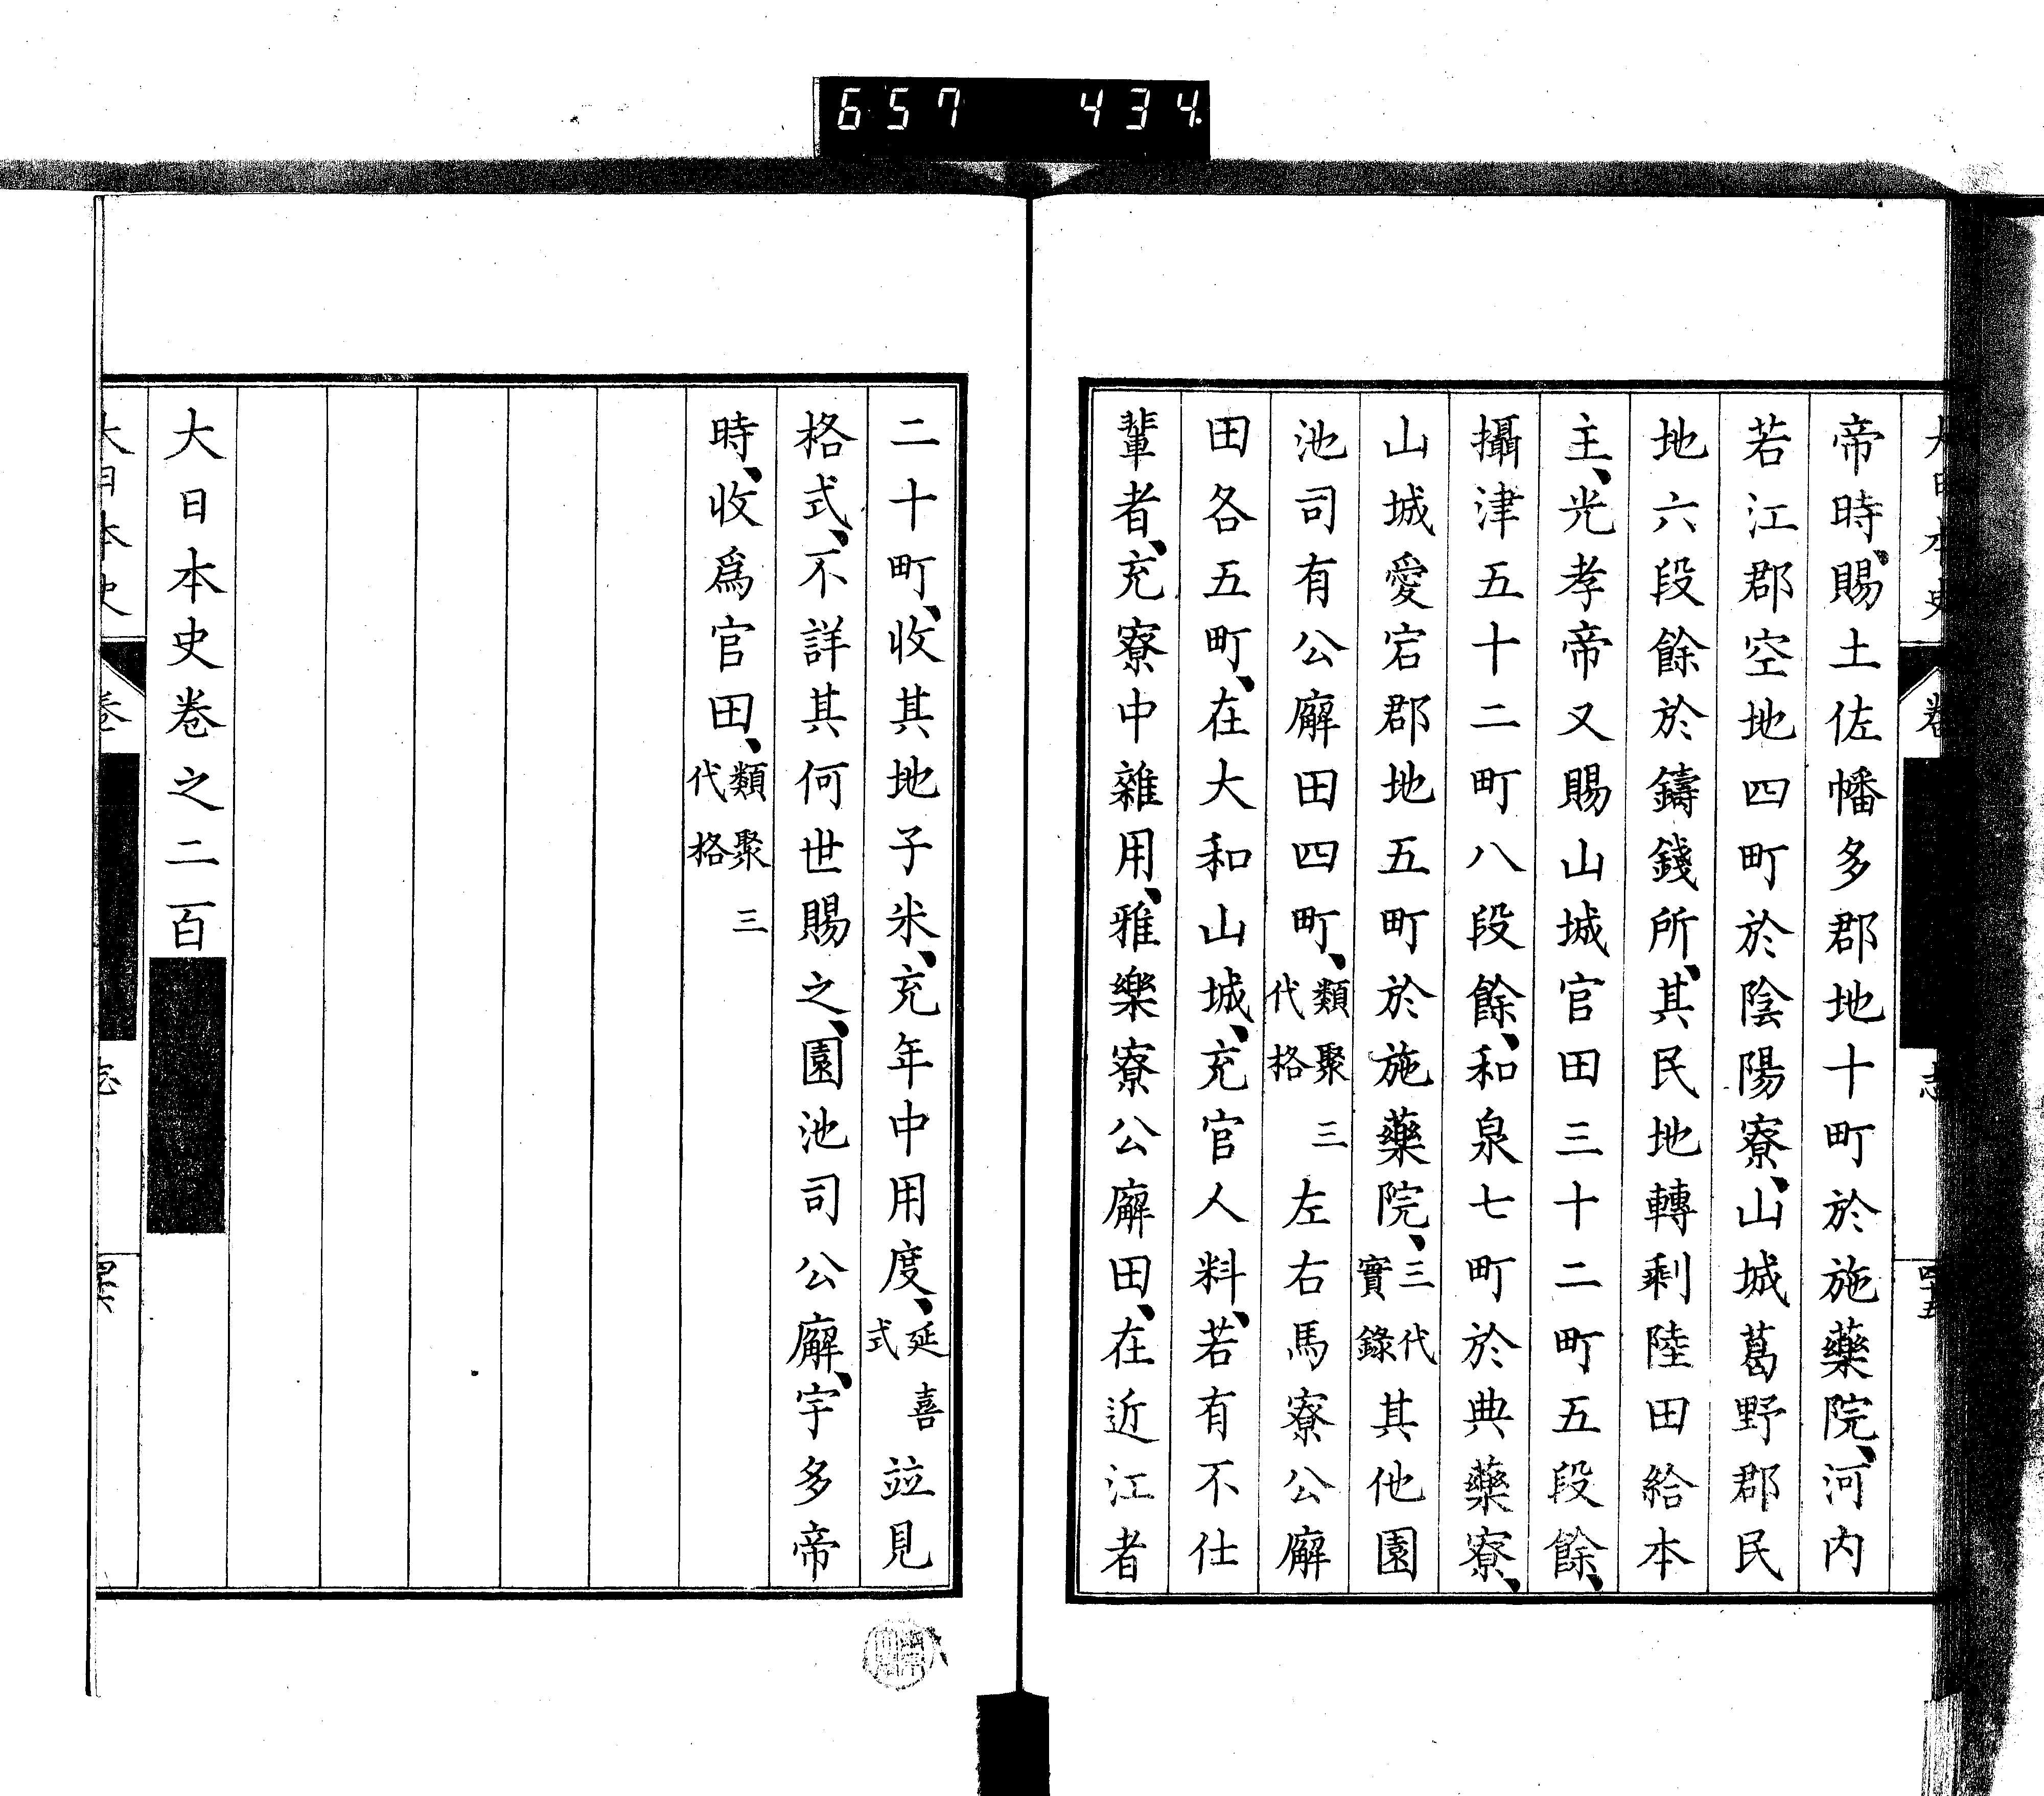 657 434
帝時、賜土佐幡多郡地十町於施藥院、河内
若江郡空地四町於陰陽寮、山城葛野郡民
地六段餘於鑄錢所、其民地轉剩陸田給本
主、光孝帝又賜山城官田三十二町五段餘、
攝津五十二町八段餘、和泉七町於典藥寮、
山城愛宕郡地五町於施藥院、三代實錄其他園
池司有公廨田四町、類聚三代格左右馬寮公廨
田各五町、在大和山城、充官人料、若有不仕
輩者、充寮中雜用、雅樂寮公廨田、在近江者
二十町、收其地子米、充年中用度、延喜式竝見
格式、不詳其何世賜之、園池司公廨、宇多帝
時、收爲官田、類聚三代格
大日本史卷之二百